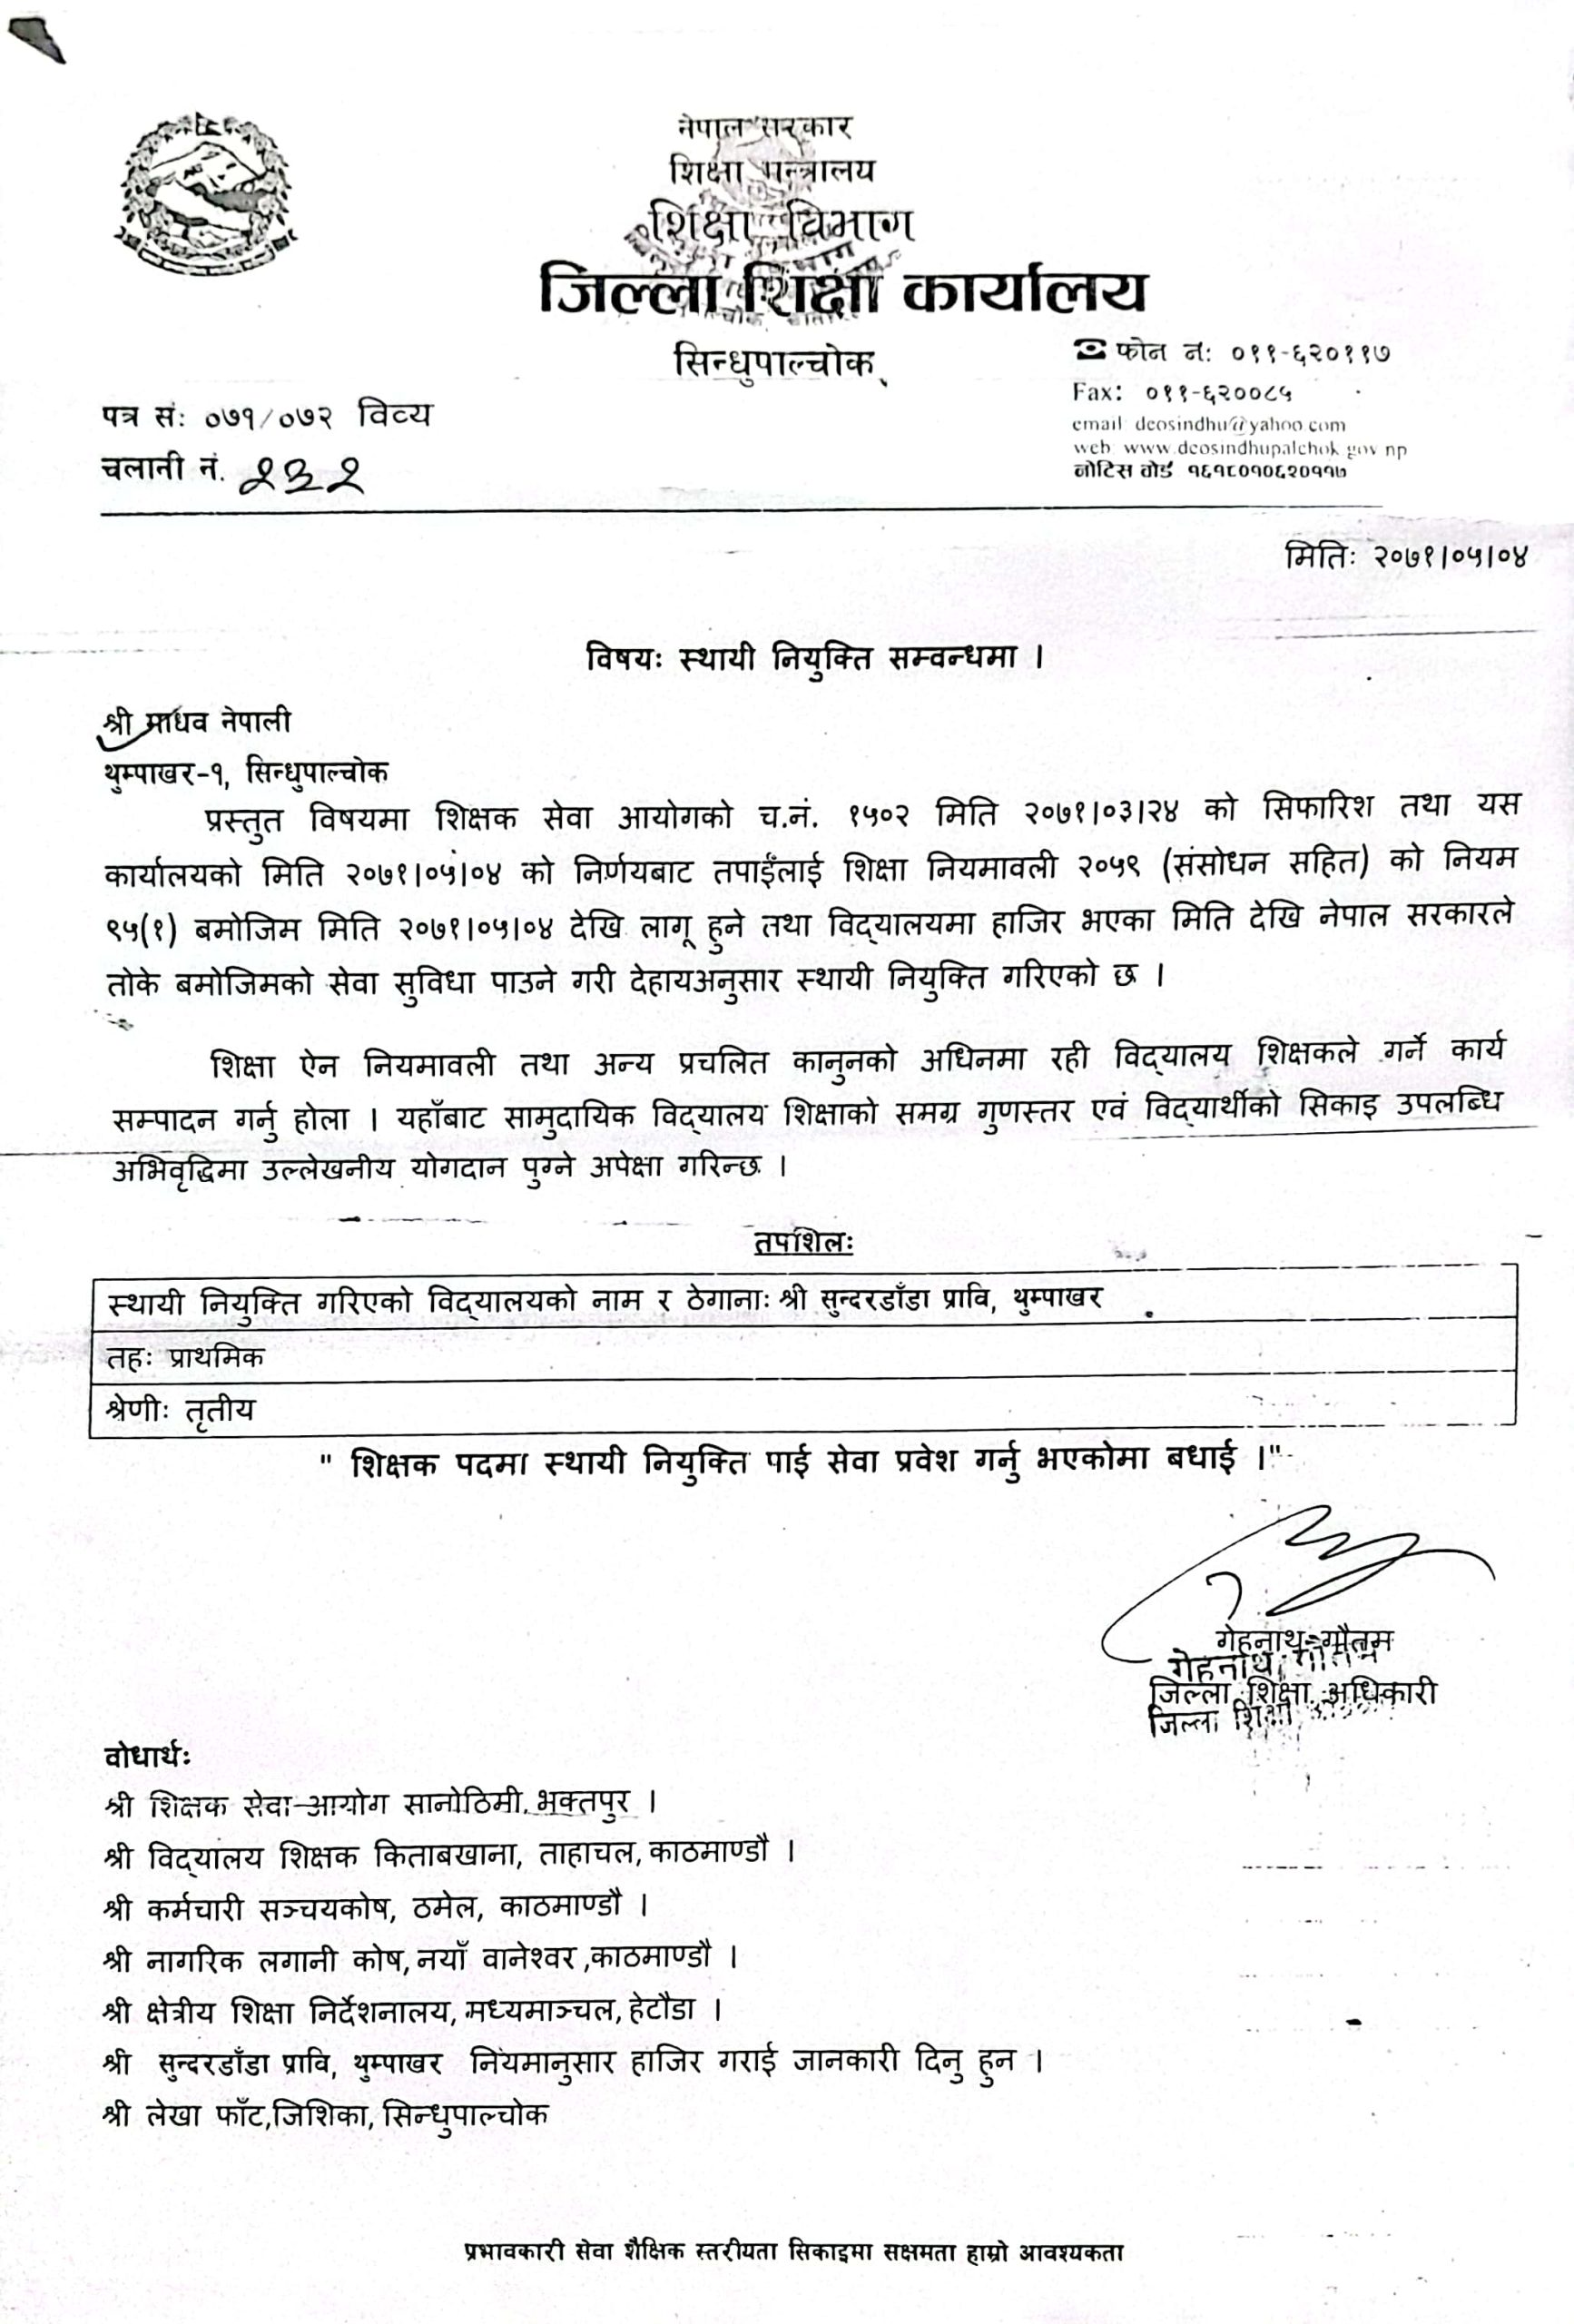 नेपाल सरकार
शिक्षा मन्त्रालय
शिक्षा विभाग
जिल्ला शिक्षा कार्यालय
सिन्धुपाल्चोक
☎ फोन नः ०११-६२०११७
Fax: ०११-६२००८५
email deosindhu@yahoo.com
web www.deosindhupalchok.gov.np
नोटिस वोर्ड १६१८०१०६२०११७
पत्र संः ०७१/०७२ विव्य
चलानी नं. २३२
मितिः २०७१।०५।०४
विषयः स्थायी नियुक्ति सम्वन्धमा ।
श्री माधव नेपाली
थुम्पाखर-१, सिन्धुपाल्चोक
प्रस्तुत विषयमा शिक्षक सेवा आयोगको च.नं. १५०२ मिति २०७१।०३।२४ को सिफारिश तथा यस
कार्यालयको मिति २०७१।०५।०४ को निर्णयबाट तपाईंलाई शिक्षा नियमावली २०५९ (संसोधन सहित) को नियम
९५(१) बमोजिम मिति २०७१।०५।०४ देखि लागू हुने तथा विद्यालयमा हाजिर भएका मिति देखि नेपाल सरकारले
तोके बमोजिमको सेवा सुविधा पाउने गरी देहायअनुसार स्थायी नियुक्ति गरिएको छ ।
शिक्षा ऐन नियमावली तथा अन्य प्रचलित कानुनको अधिनमा रही विद्यालय शिक्षकले गर्ने कार्य
सम्पादन गर्नु होला । यहाँबाट सामुदायिक विद्यालय शिक्षाको समग्र गुणस्तर एवं विद्यार्थीको सिकाइ उपलब्धि
अभिवृद्धिमा उल्लेखनीय योगदान पुग्ने अपेक्षा गरिन्छ ।
तपशिलः
स्थायी नियुक्ति गरिएको विद्यालयको नाम र ठेगानाः श्री सुन्दरडाँडा प्रावि, थुम्पाखर
तहः प्राथमिक
श्रेणीः तृतीय
" शिक्षक पदमा स्थायी नियुक्ति पाई सेवा प्रवेश गर्नु भएकोमा बधाई ।"
गेहनाथ गौतम
गेहनाथ गौतम
जिल्ला शिक्षा अधिकारी
जिल्ला शिक्षा
वोधार्थः
श्री शिक्षक सेवा आयोग सानोठिमी, भक्तपुर ।
श्री विद्यालय शिक्षक किताबखाना, ताहाचल, काठमाण्डौ ।
श्री कर्मचारी सञ्चयकोष, ठमेल, काठमाण्डौ ।
श्री नागरिक लगानी कोष, नयाँ वानेश्वर ,काठमाण्डौ ।
श्री क्षेत्रीय शिक्षा निर्देशनालय, मध्यमाञ्चल, हेटौडा ।
श्री सुन्दरडाँडा प्रावि, थुम्पाखर नियमानुसार हाजिर गराई जानकारी दिनु हुन ।
श्री लेखा फाँट,जिशिका, सिन्धुपाल्चोक
प्रभावकारी सेवा शैक्षिक स्तरीयता सिकाइमा सक्षमता हाम्रो आवश्यकता